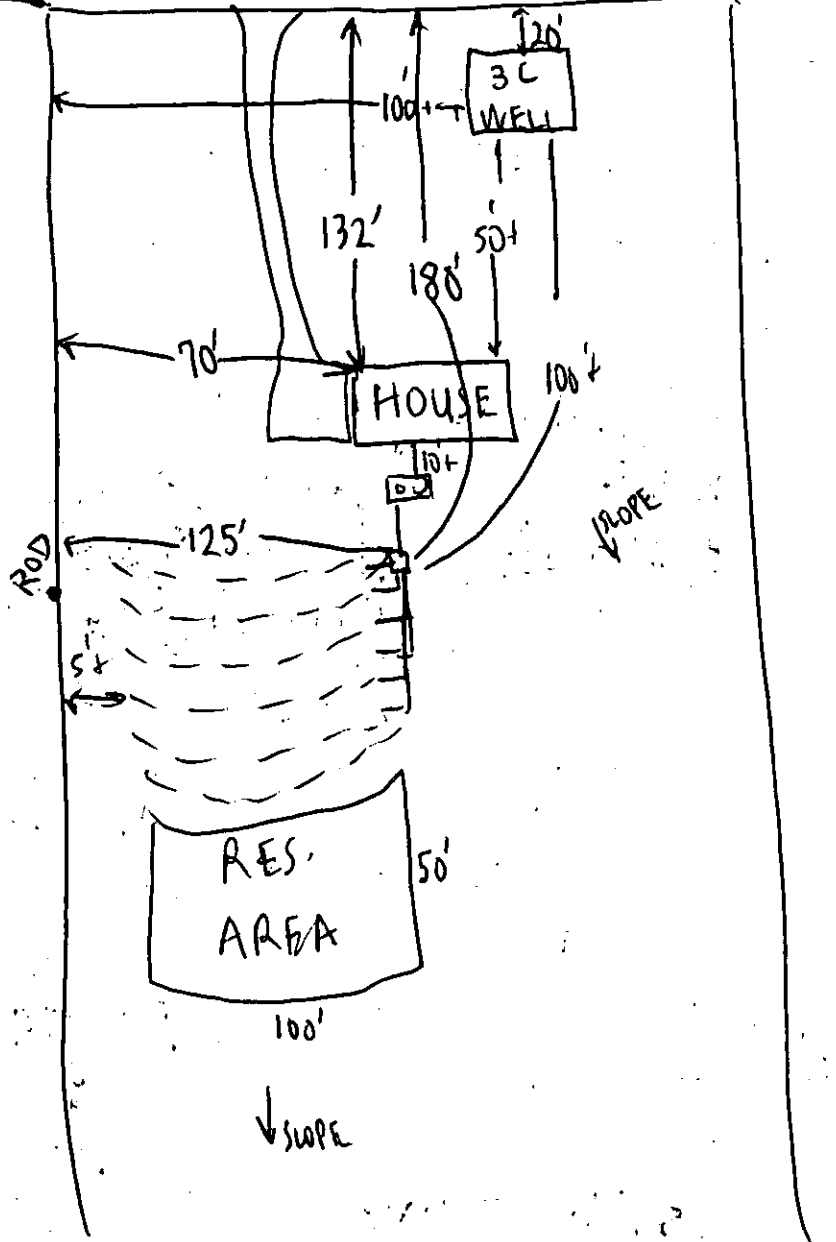 20'
3C
WELL
100'+
132'
50'+
180'
70'
100'+
HOUSE
10'+
SLOPE
125'
ROD
5'+
RES.
AREA
50'
100'
SLOPE